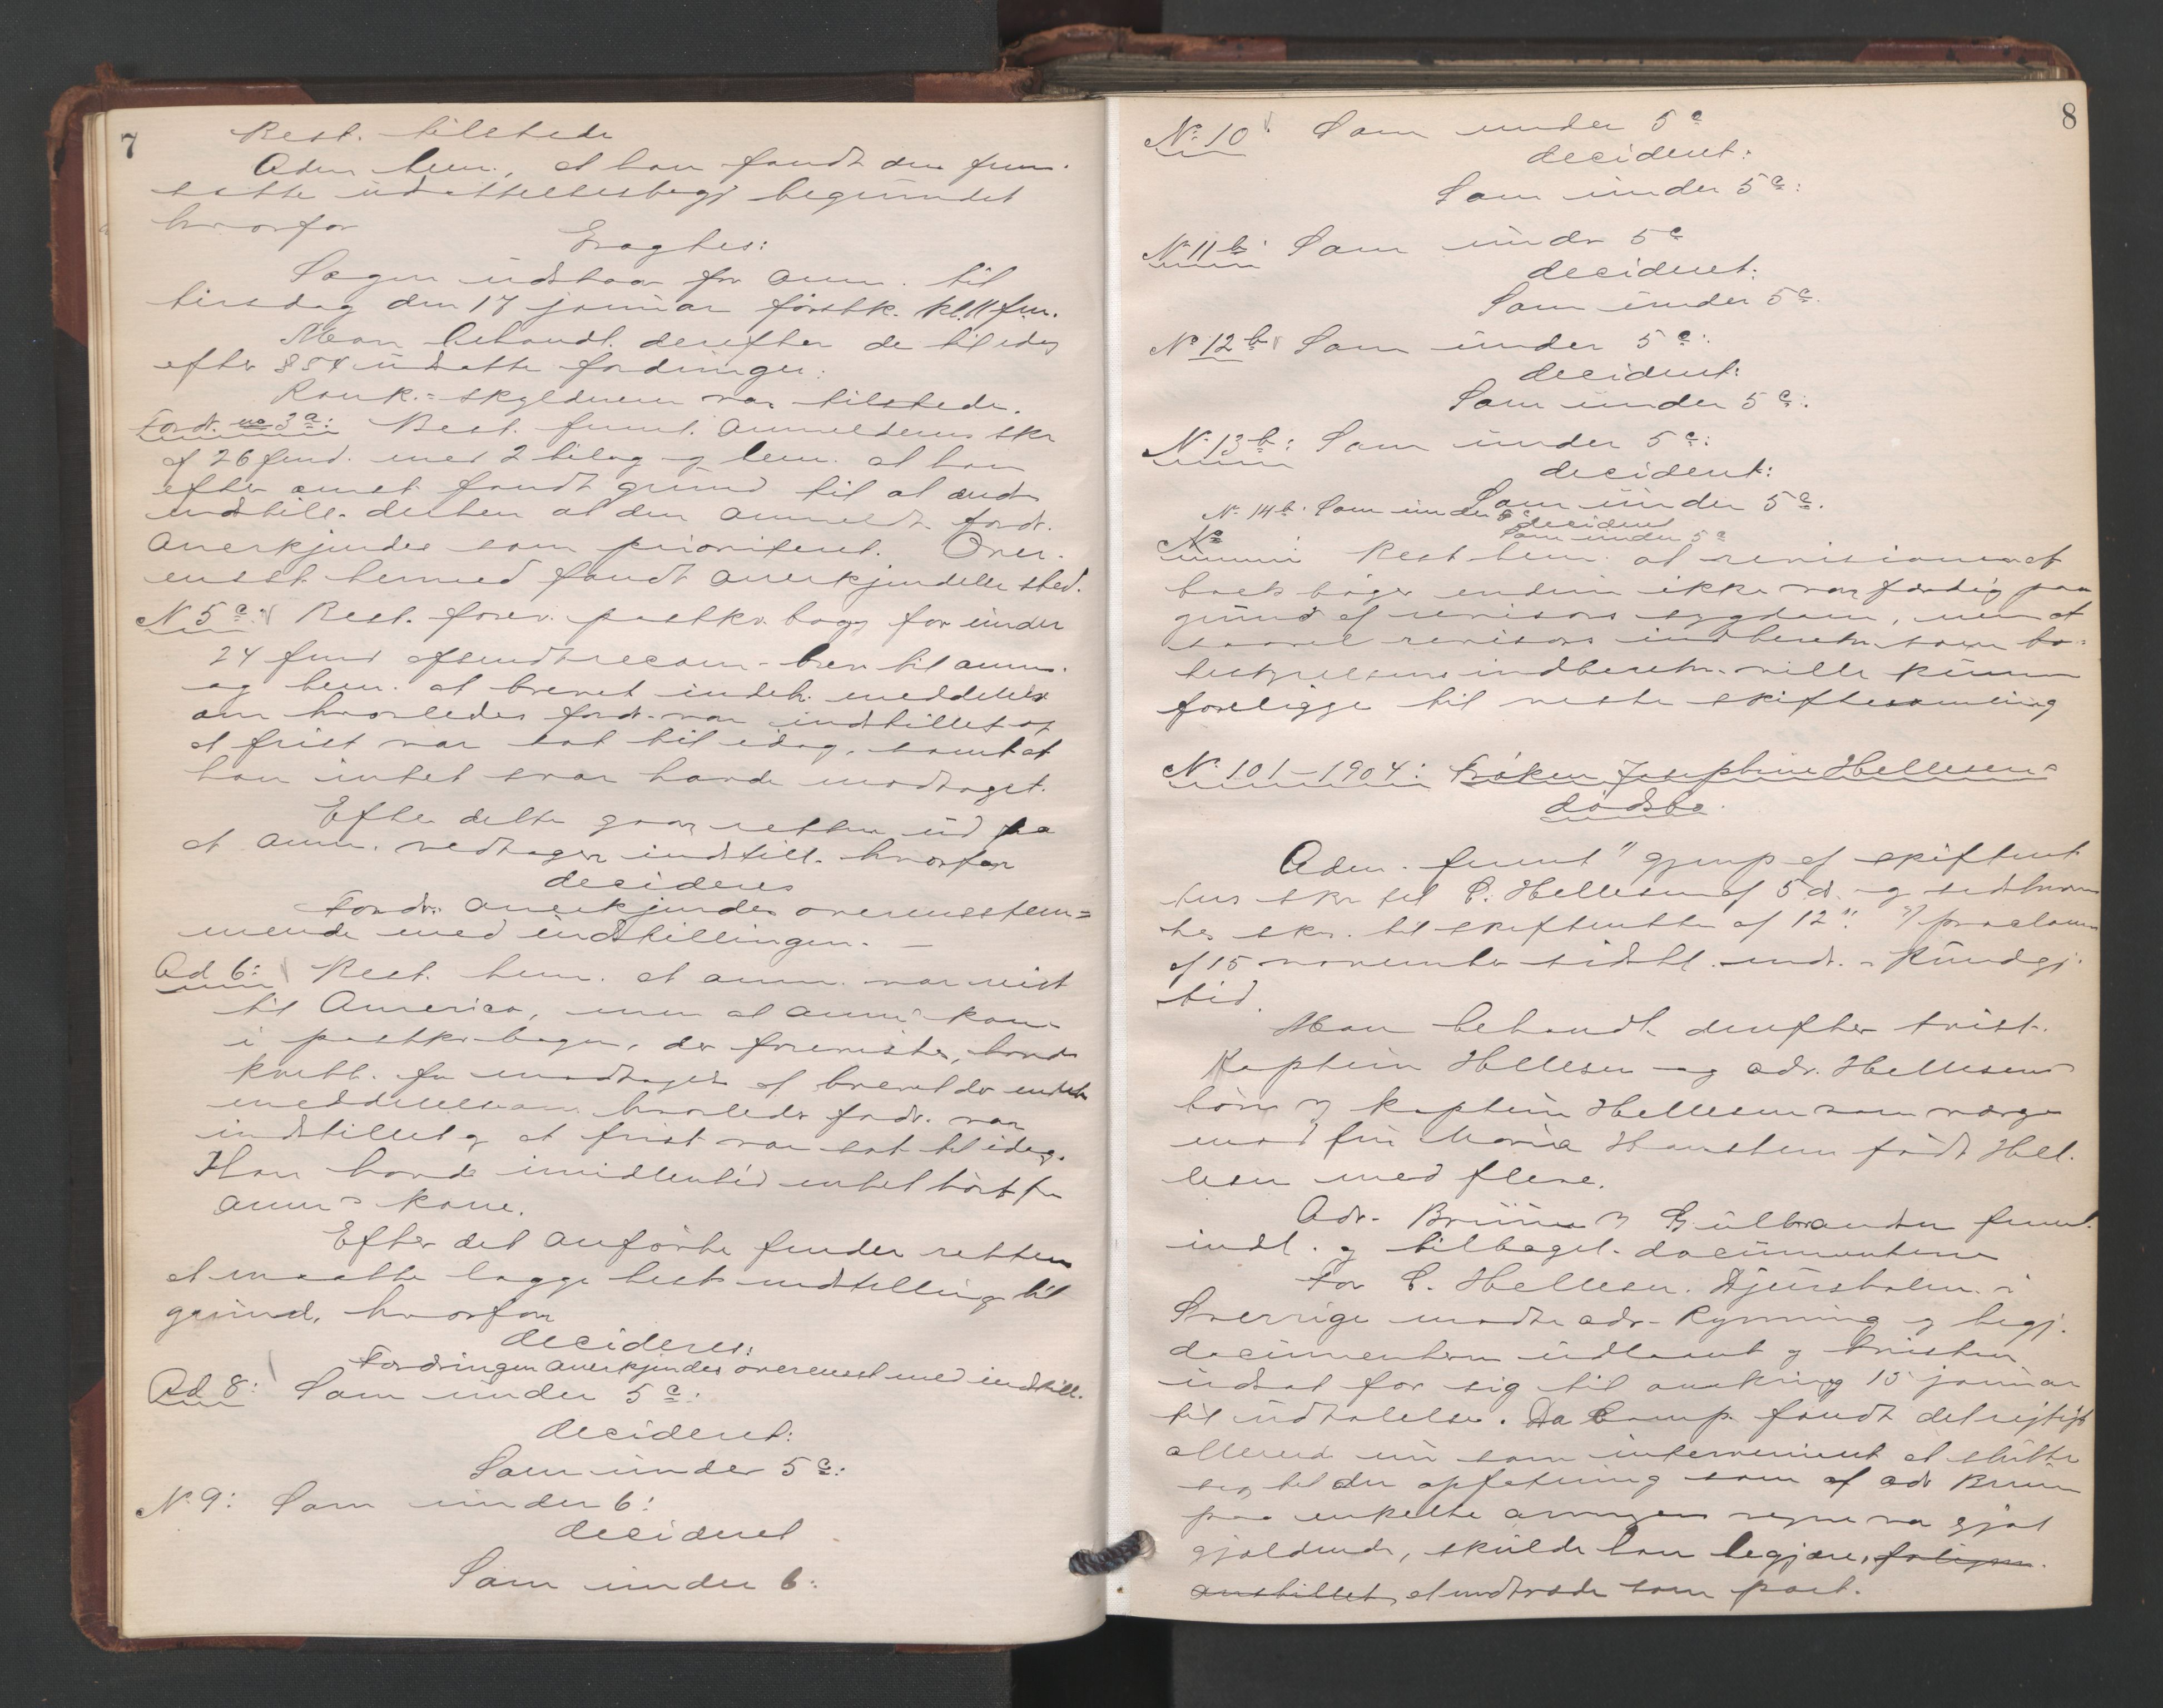 7
Best. tilstede
Adm bem., at han fandt den frem-
satte udsættelsesbegj begrundet
hvorfor
Eragtes:
Sagen udstaar for anm. til
tirsdag den 17 januar førstk. kl. 11 fm.
Man behandl. derefter de til idag
efter § 54 udsatte fordringer:
Konk.=skyldneren var tilstede.
Fordr. no 3a: Best. freml. anmelderens skr
af 26 f md. med 2 bilag og bem. at han
efter omst. fandt grund til at ændre
indstill. derhen at den anmeldte fordr.
anerkjendes som prioriteret. Over-
ensst hermed fandt anerkjendelse sted.
N 5a: Best. forev. postkv. bog for under
24 f md afsendt recom. brev til anm.
og bem. at brevet indeh. meddelelse
om hvorledes fordr. var indstillet og
at frist var sat til idag, samt at
han intet svar havde modtaget.
Efter dette gaar retten ud fra
at anm. vedtager indstill. hvorfor
decideres
Fordr. anerkjendes overensstem=
mende med indstillingen. —
Ad 6: Best. bem. at anm. var reist
til America, men at anm's kone
i postkv. bogen, der foreviste, havde
kvitt. for modtagels af brevet der indeh
meddelelse om hvorledes fordr. var
indstillet og at frist var sat til idag.
Han havde imidlertid intet hørt fra
anm's kone.
Efter det anførte finder retten
at maatte lægge best. indstilling til
grund, hvorfor
decideres:
Fordringen anerkjendes overensst med indstill.
Ad 8: Som under 5a:
decideret:
Som under 5a:
N. 9: Som under 6:
decideret
Som under 6:
8
No 10: Som under 5a
decideret:
Som under 5a:
No 11b: Som under 5a
decideret:
Som under 5a:
No 12b Som under 5a:
decideret:
Som under 5a:
N. 13b: Som under 5a:
decideret:
Som under 5a.
N. 14b: Som under 5a
decideret
Som under 5a
No
Best bem. at revisionen af
boets bøger endnu ikke var færdig paa
grund af revisors sygdom, men at
saavel revisors indberetn. som bo-
bestyrelsens indberetn. ville kunne
foreligge til næste skiftesamling
No 101–1904: Frøken Josephine Hellesens
dødsbo.
Adm. freml gjenp af skifterett
ens skr til C. Hellesen af 5 ds. og sidstnævn
tes skr. til skifteretten af 12
af 15 november sidstl. med. Kundgj.
tid.
Man behandl. derefter tvist.
Kaptein Hellesen og adv. Hellesens
børn v kaptein Hellesen som værge
mod fru Maria Hanstein født Hel-
lesen med flere.
Adv. Bruun v Gulbrandsen freml.
indl. og tilbagel. documenterne
For C. Hellesen. Djursholm. i
Sverrige mødte adv. Rynning og begj.
documenterne udlaant og tvisten
udsat for sig til omkring 15 januar
til udtalelse. Da comp. fandt det rigtigt
allerede nu som intervenient at slutte
sig til den opfatning som af adv Bruun
paa enkelte arvingers vegne var gjort
gjældende, skulde han begjære,
at indtræde som part.